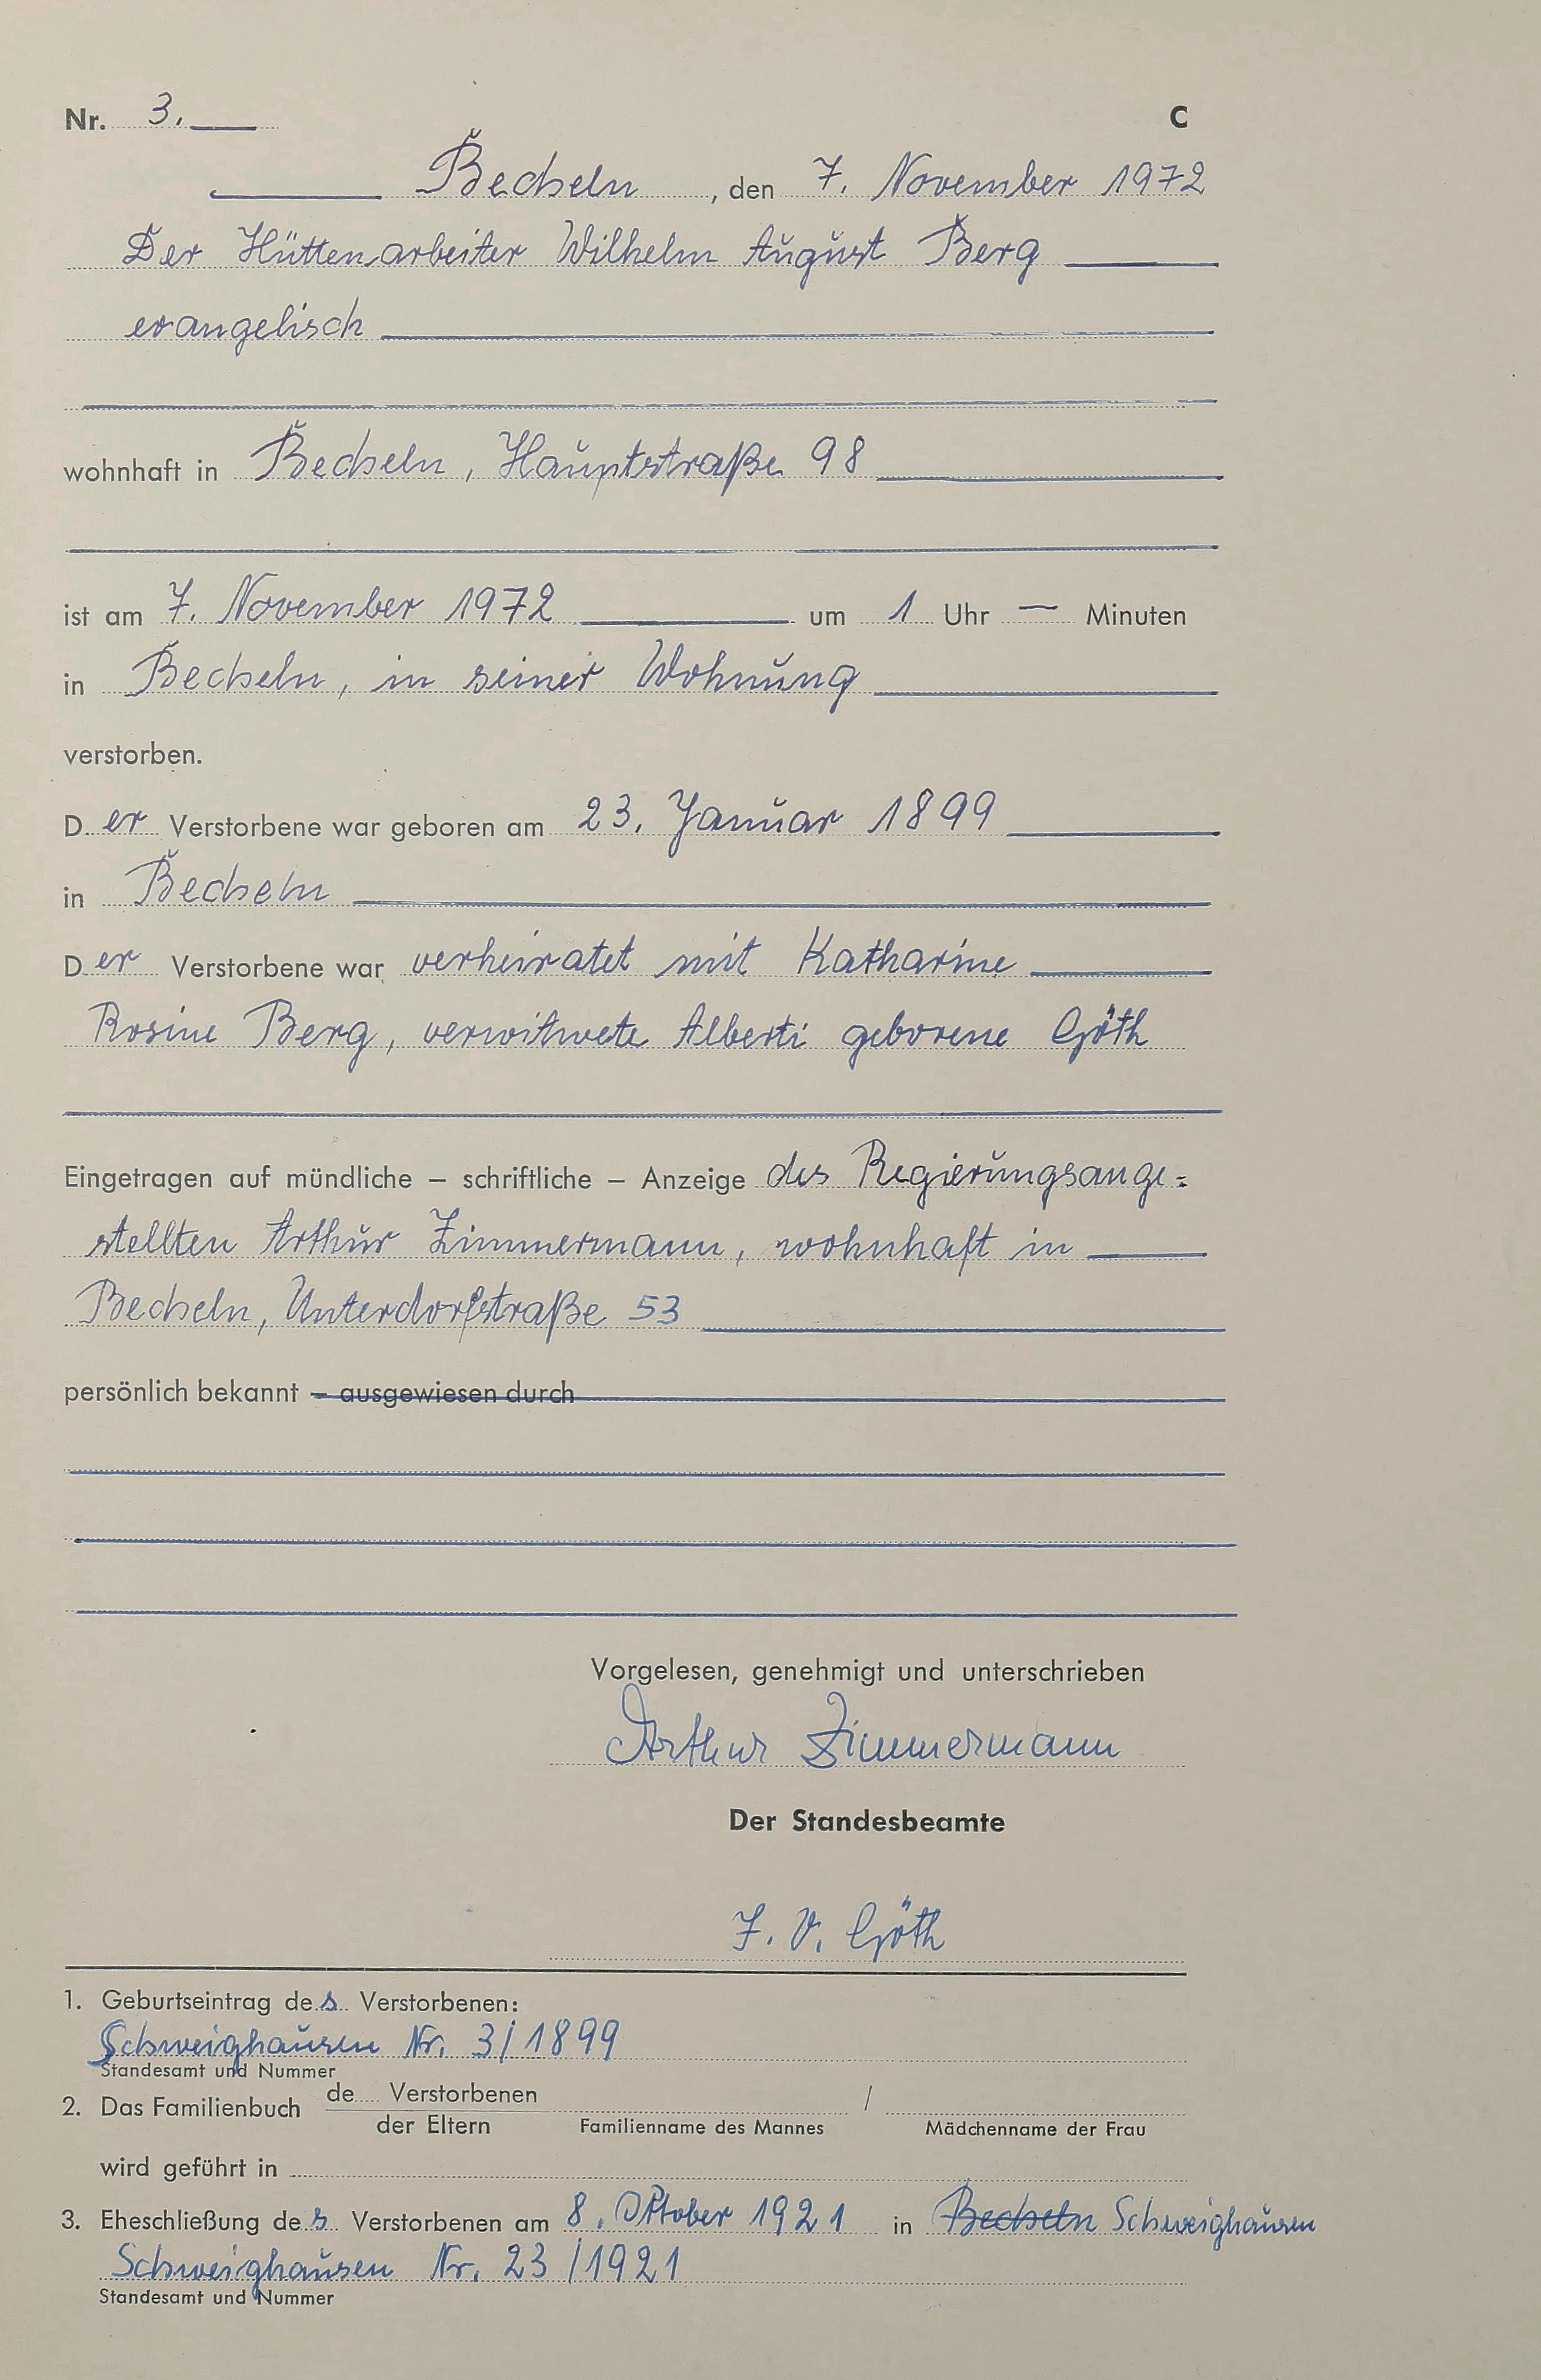 Nr. 3. C
Becheln, den 7. November 1972
Der Hüttenarbeiter Wilhelm August Berg
evangelisch
wohnhaft in Becheln, Hauptstraße 98
ist am 7. November 1972 um 1 Uhr — Minuten
in Becheln, in seiner Wohnung
verstorben.
Der Verstorbene war geboren am 23. Januar 1899
in Becheln
Der Verstorbene war verheiratet mit Katharine
Rosine Berg, verwitwete Alberti geborene Göth
Eingetragen auf mündliche – schriftliche – Anzeige des Regierungsange=
stellten Arthur Zimmermann, wohnhaft in
Becheln, Unterdorfstraße 53
persönlich bekannt – ausgewiesen durch
Vorgelesen, genehmigt und unterschrieben
Arthur Zimmermann
Der Standesbeamte
I. V. Göth
1. Geburtseintrag des Verstorbenen:
Schweighausen Nr. 3/1899
Standesamt und Nummer
2. Das Familienbuch de Verstorbenen /
der Eltern Familienname des Mannes Mädchenname der Frau
wird geführt in
3. Eheschließung des Verstorbenen am 8. Oktober 1921 in Becheln Schweighausen
Schweighausen Nr. 23/1921
Standesamt und Nummer